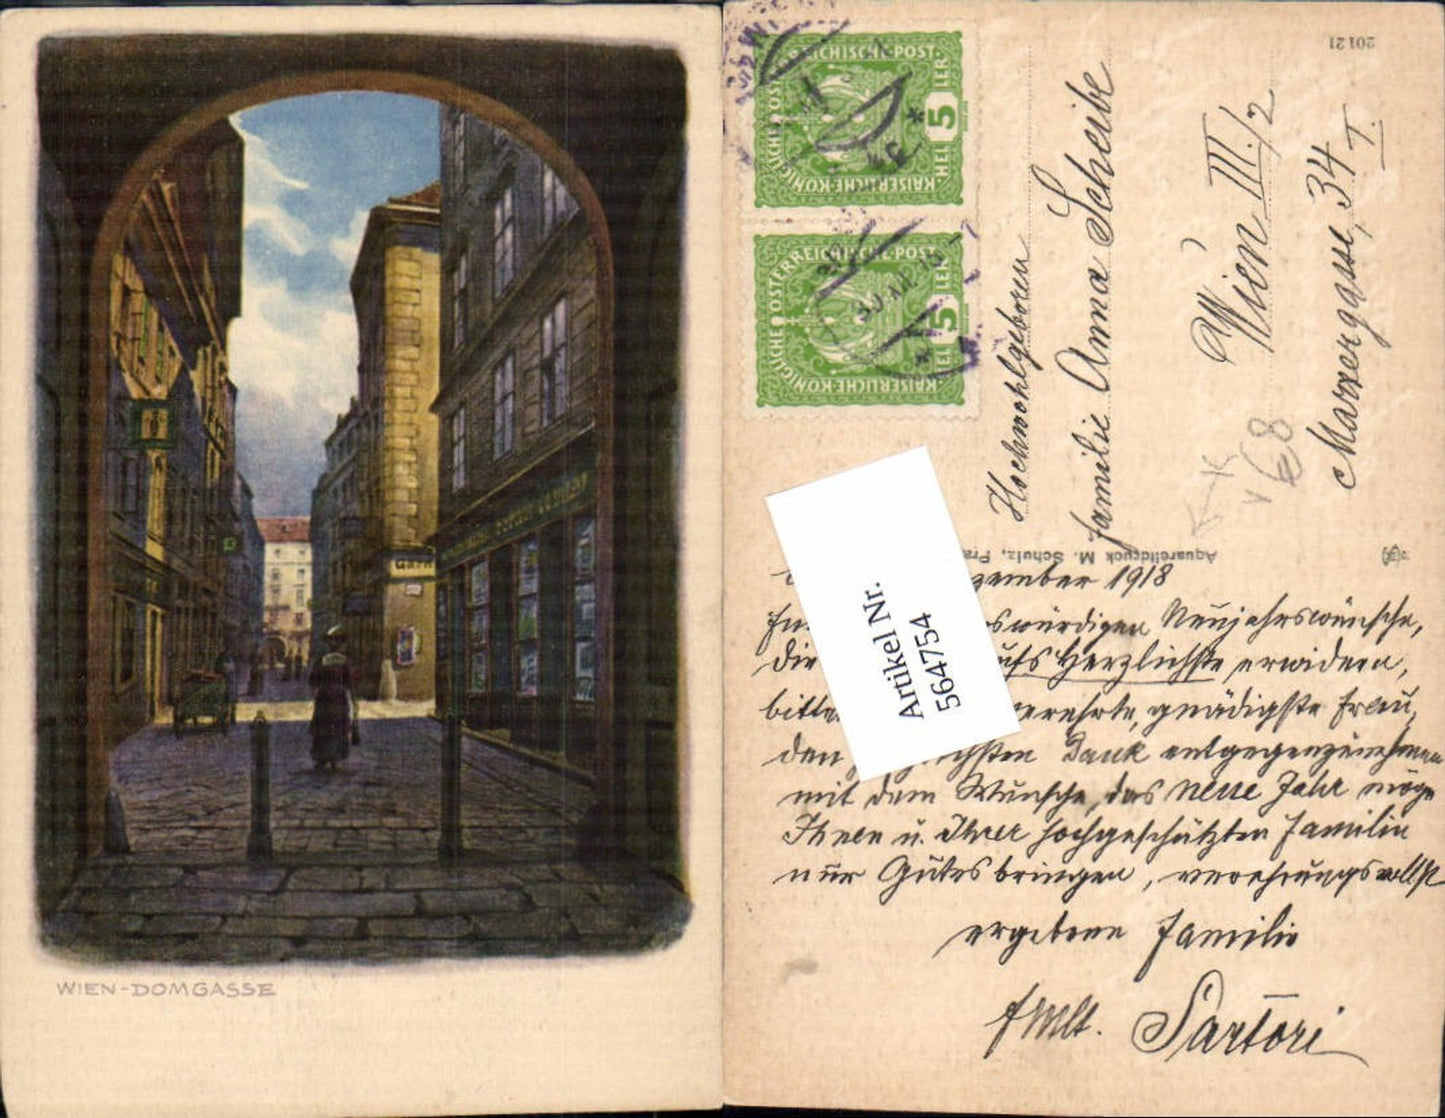 WIEN-DOMGASSE
Garn
KAISERLICHE·KÖNIGLICHE ÖSTERREICHISCHE·POST·
5 HELLER
KAISERLICHE·KÖNIGLICHE ÖSTERREICHISCHE·POST·
5 HELLER
20121
Hochwohlgeboren
Familie Anna Scheibe
Wien III./2
Marxergasse, 34
T.
€8
Aquarelldruck M. Schulz, Pra
Artikel Nr.
564754
zember 1918
swürdigen Neujahrswünsche,
die aufs Herzlichste erwidern,
bitte verehrte, gnädigste Frau,
den Dank entgegenzunehmen
mit dem Wunsche, das neue Jahr möge
Ihnen u. Ihrer hochgeschätzten Familie
nur Gutes bringen, verehrungsvollst
ergebene Familie
Sartori